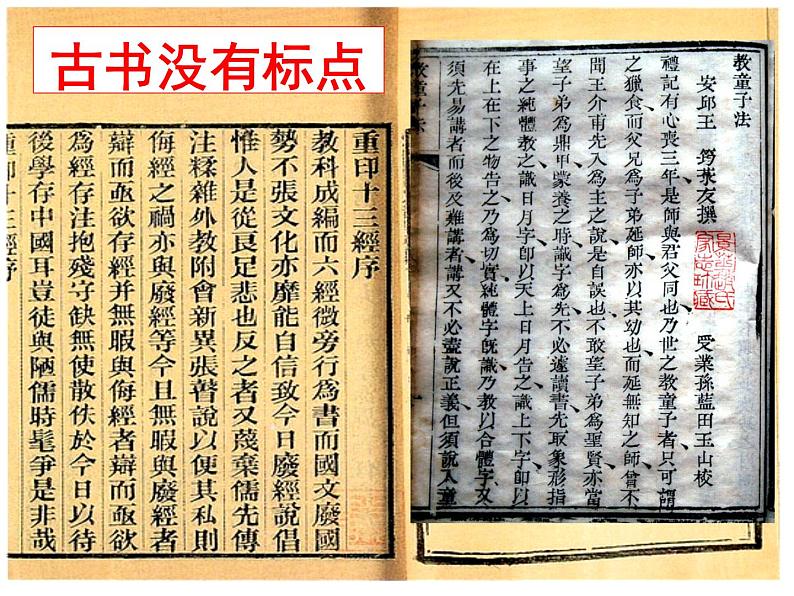 古书没有标点
教童子法
安邱王筠菉友撰
受業孫藍田玉山校
禮記有心喪三年是師與君父同也乃世之教童子者只可謂
之獵食而父兄為子弟延師亦以其幼也而延無知之師曾不
聞王介甫先入為主之說是自誤也不敢望子弟為聖賢亦當
望子弟為鼎甲蒙養之時識字為先不必遽讀書先取象形指
事之純體教之識日月字即以天上日月告之識上下字即以
在上在下之物告之乃為切實純體字既識乃教以合體字又
須先易講者而後及難講者講又不必盡說正義但須說入童
教童子法
重印十三經序
教科成編而六經微旁行為書而國文廢國
勢不張文化亦靡能自信致今日廢經說倡
惟人是從良足悲也反之者又蔑棄儒先傳
注糅雜外教附會新異張瞽說以便其私則
侮經之禍亦與廢經等今且無暇與廢經者
辯而亟欲存經并無暇與侮經者辯而亟欲
為經存注抱殘守缺無使散佚於今日以待
後學存中國耳豈徒與陋儒時髦爭是非哉
重印十三經序